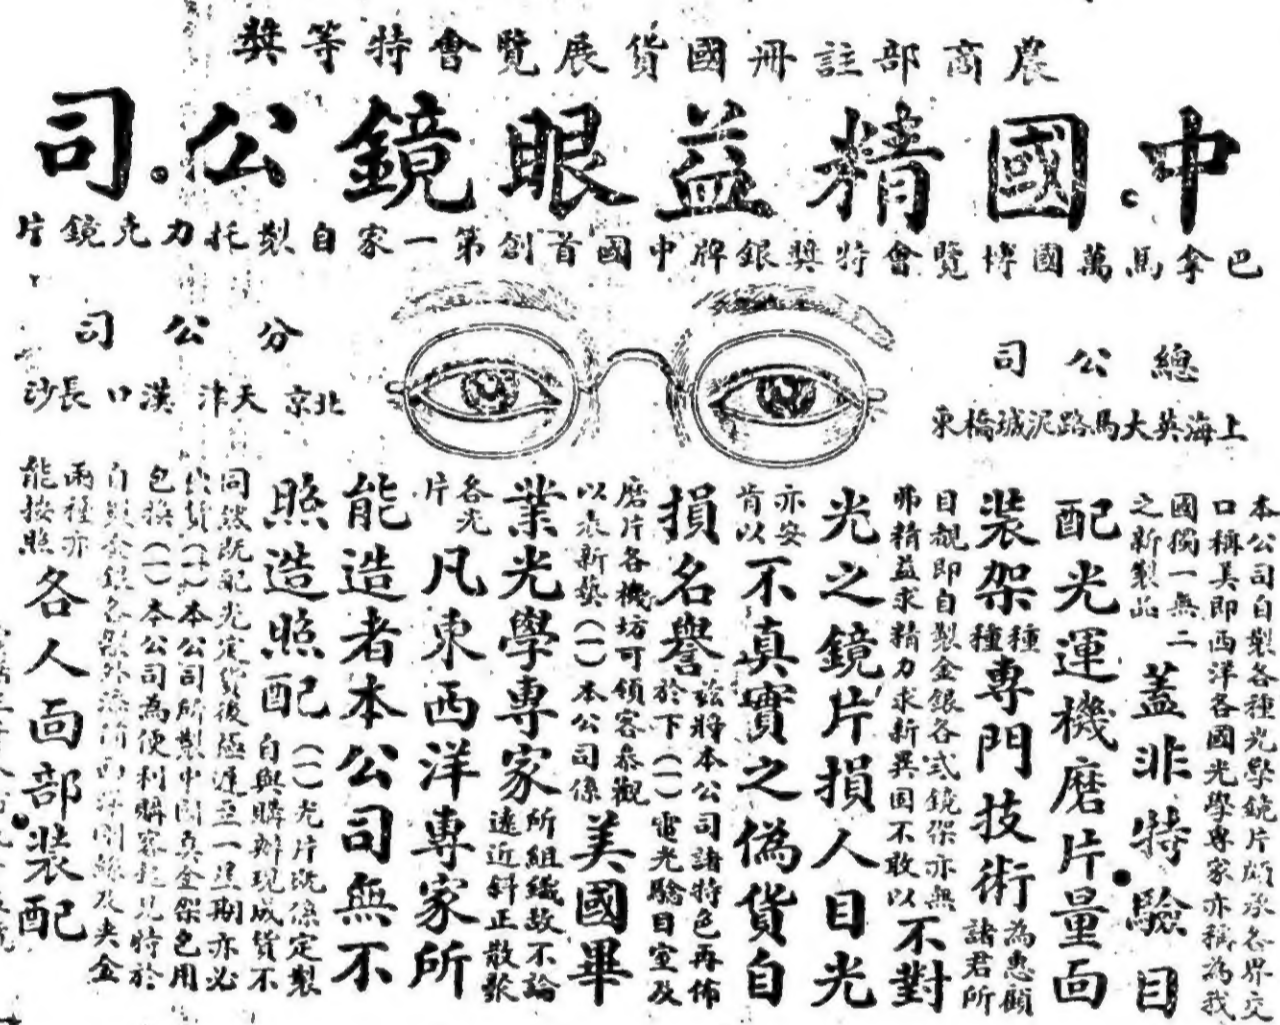 農商部註冊國貨展覽會特等獎
中國精益眼鏡公司
巴拿馬萬國博覽會特獎銀牌中國首創第一家自製托力克鏡片
總公司
上海英大馬路泥城橋東
分公司
北京 天津 漢口 長沙
本公司自製各種光學鏡片頗承各界交
口稱美即西洋各國光學專家亦稱為我
國獨一無二
之新製品
蓋非特驗目
配光運機磨片量面
裝架種種專門技術為惠顧諸君所
目覩即自製金銀各式鏡架亦無
弗精益求精力求新異固不敢以不對
光之鏡片損人目光
亦安肯以不真實之偽貨自
損名譽茲將本公司諸特色再佈
於下(一)電光驗目室及
磨片各機坊可領客恭觀
以表新藝(一)本公司係美國畢
業光學專家所組織故不論
遠近斜正散
各光片凡東西洋專家所
能造者本公司無不
照造照配(一)光片既係定製
自與購辦現成貨不
同然既配光定貨後極遲至一星期亦必
本公司所製中國真金架包用
包換(一)本公司為便利購客起見特於
自製金銀各架外添
兩種亦
能按照各人面部裝配